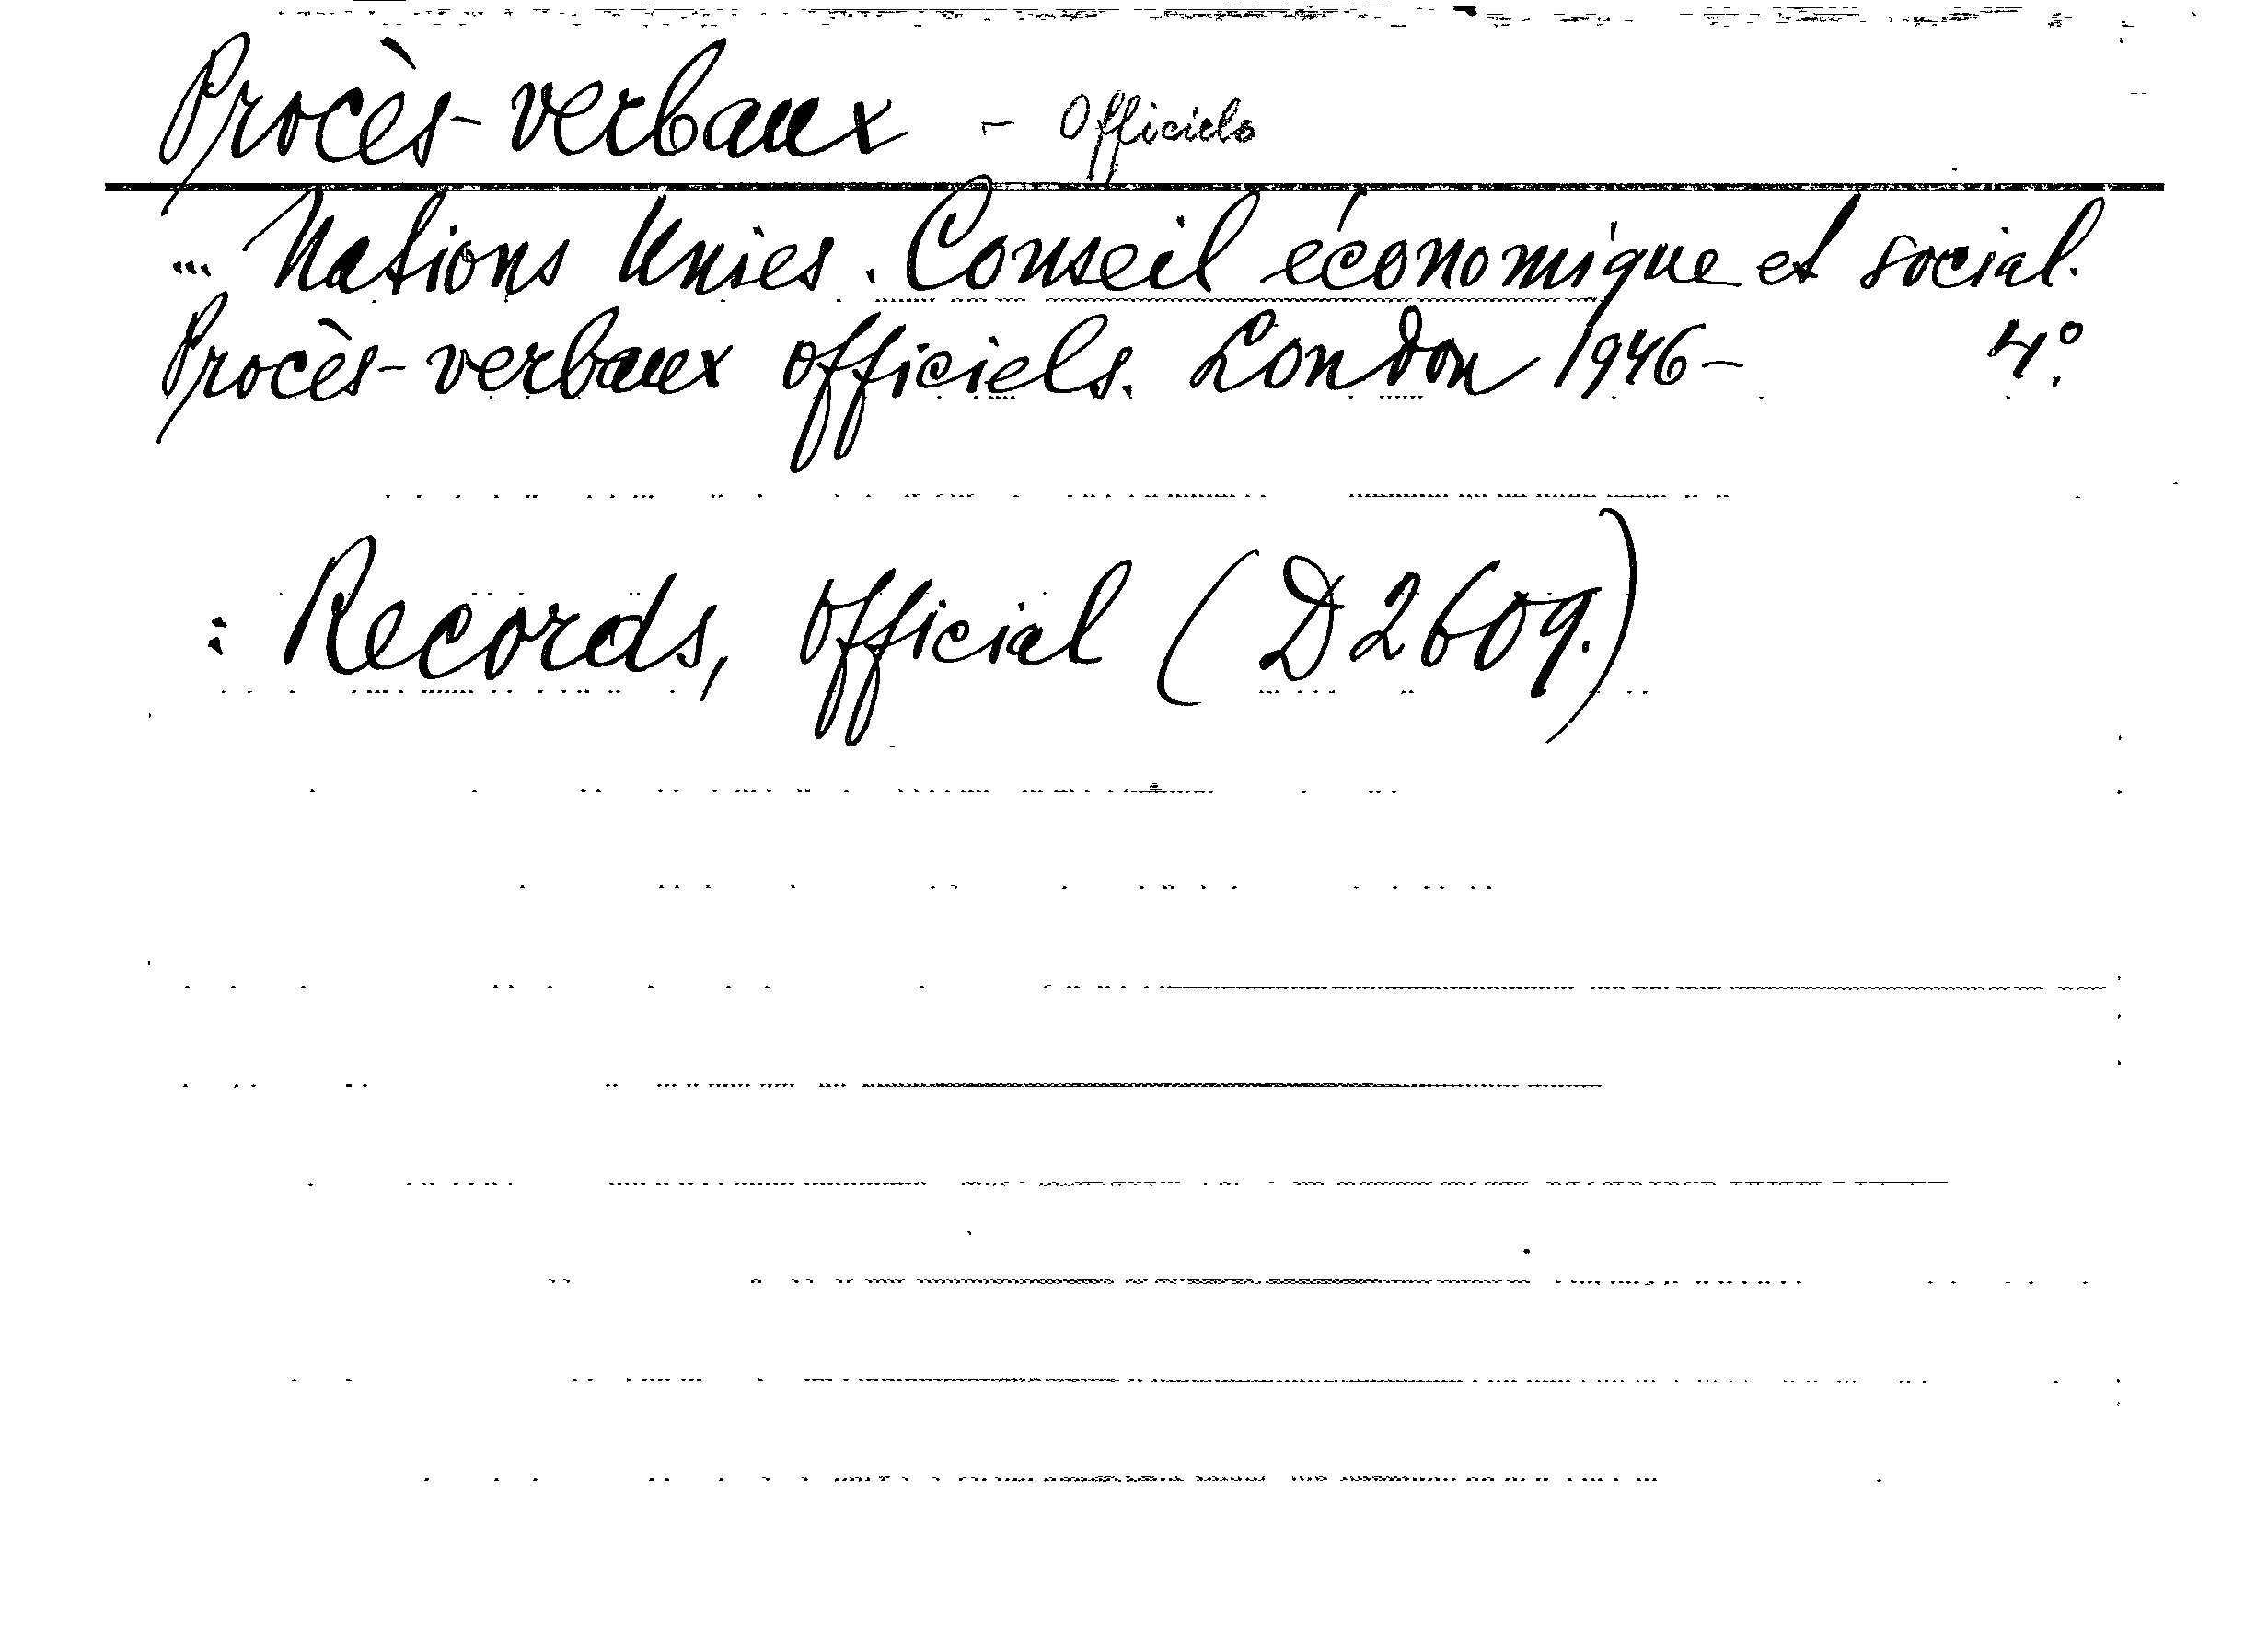 Procès-verbaux - Officiels
... Nations Unies. Conseil économique et social.
Procès-verbaux officiels. London 1946- 4:o
: Records, Official (D 2609.)